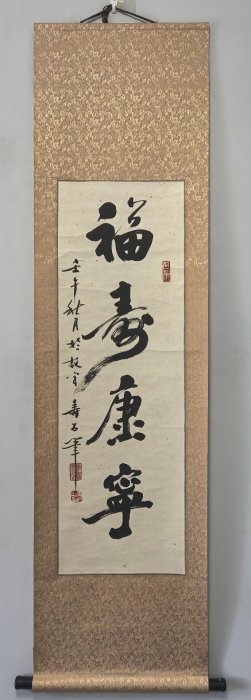 福壽康寧
壬午秋月於故宮壽石筆